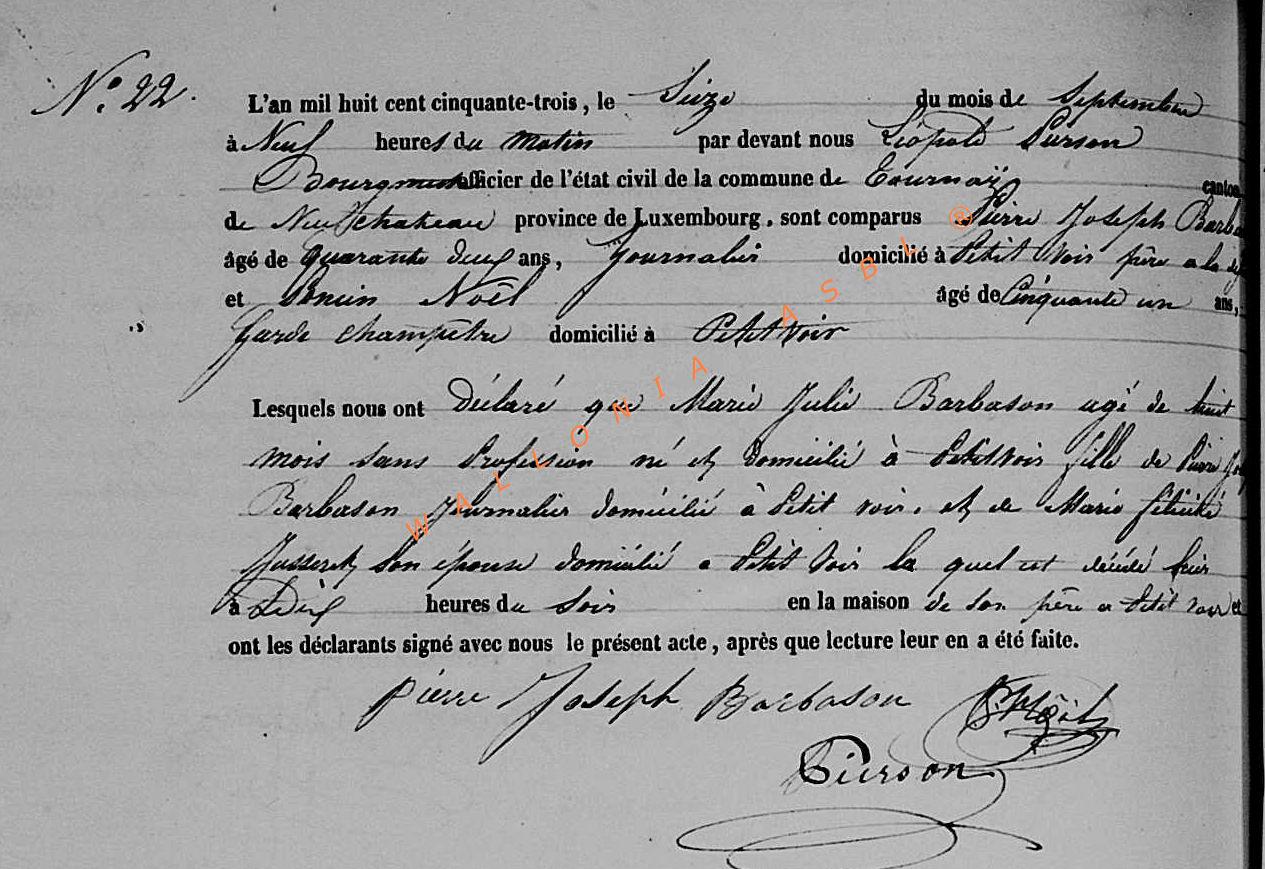 N.° 22.
L'an mil huit cent cinquante-trois, le Seize du mois de Septembre
à Neuf heures du matin par devant nous Léopold Pierson
Bourgmestre officier de l'état civil de la commune de Tournaÿ canton
de Neufchateau province de Luxembourg, sont comparus Pierre Joseph Barba
âgé de quarante deux ans, Journalier domicilié à Petit Voir père a la
et Noël âgé de Cinquante un ans,
Garde champêtre domicilié à Petit voir
Lesquels nous ont Déclaré que Marie Julie Barbason agé de huit
mois sans Profession né et domicilié à Petitvoir fille de Pierre
Barbason Journalier domicilié à Petit voir. et de Marie félicité
Jusseret son épouse domicilié a Petit Voir la quel est décédé hier
à Dix heures du Soir en la maison de son père a Petit voir et
ont les déclarants signé avec nous le présent acte, après que lecture leur en a été faite.
pierre Joseph Barbason
Pierson
WALLONIA ASBL ®